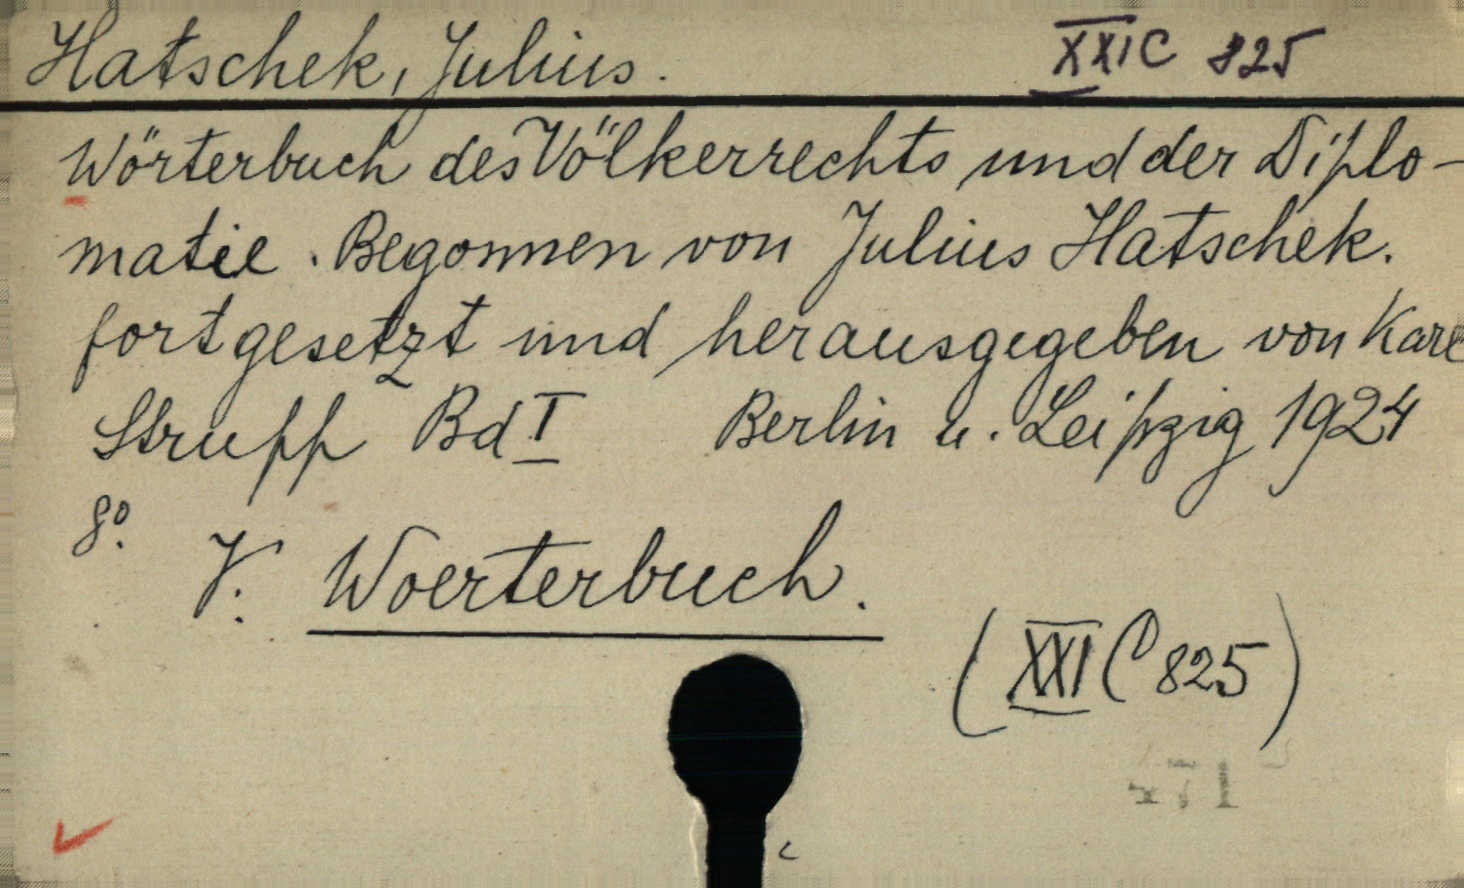 Hatschek, Julius. XXI C 825
Wörterbuch des Völkerrechts und der Diplo-
matie. Begonnen von Julius Hatschek.
fortgesetzt und herausgegeben von Karl
Strupp Bd I Berlin u. Leipzig 1924
8º.
V. Woerterbuch.
(XXI C 825)